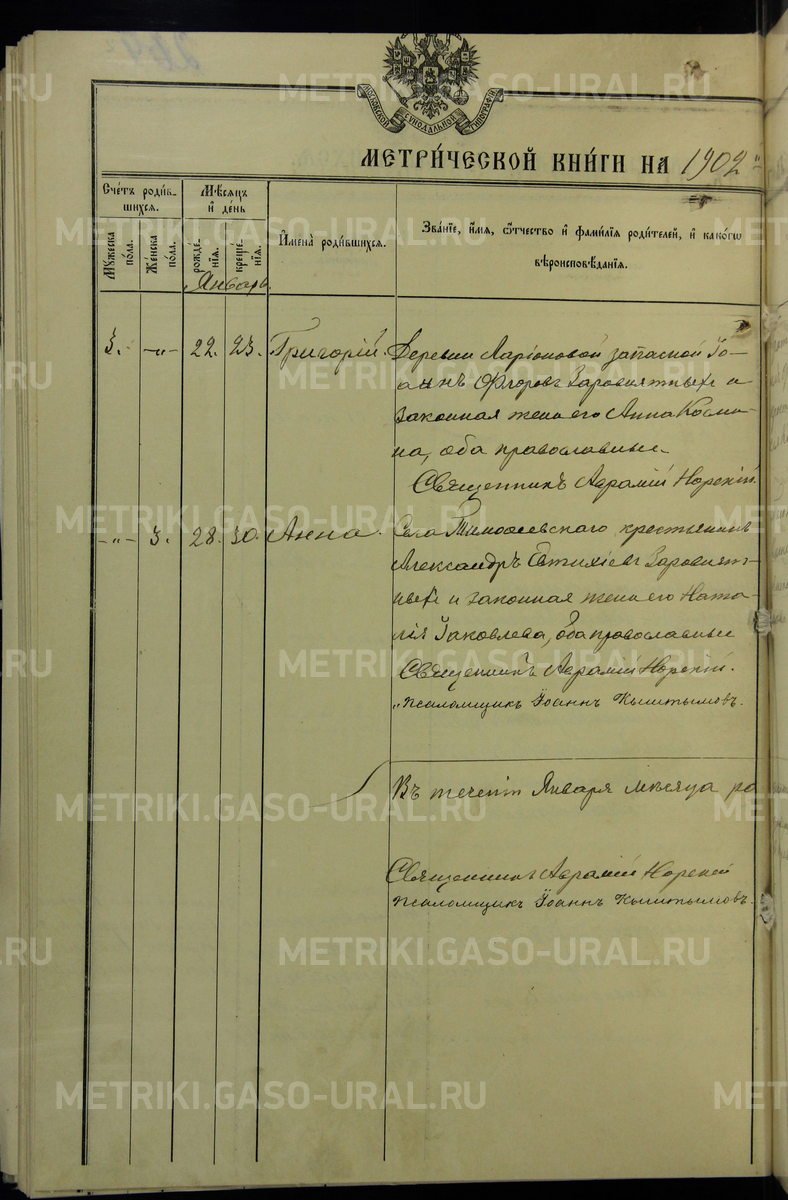 МОСКОВСКОЙ СѴНОДАЛЬНОЙ ТИПОГРАФІИ
МЕТРИ́ЧЕСКОЙ КНИ́ГИ НА 1902
Сче́тъ роди́в-
шихся.
Мѣ́сяцъ
и҆ де́нь
Мꙋ́жеска
по́ла.
Же́нска
по́ла.
рожде́-
нія.
креще́-
нія.
Январь
И҆мена̀ роди́вшихся.
Зва́ніе, и҆́мя, ѻ҆́тчество и҆ фами́лія роди́телей, и҆ како́гѡ
вѣроисповѣ́данія.
3. -„- 22. 23. Григорій.
Деревни Ларіоновой запасной Іо-
аннъ Флоровъ Заровнятныхъ и
законная жена его Анна Косми-
на, оба православные
Священникъ Аврамій Норскій.
-„- 3. 28. 30. Анна.
Села Тимофеевскаго крестьянинъ
Александръ Евтихіевъ Заровнят-
ныхъ и законная жена его Ната-
лія Іаковлева, оба православные
Священникъ Аврамій Норскій.
„Псаломщикъ Іоаннъ Кыштымовъ.
Въ теченіи Января мѣсяца ро
Священникъ Аврамій Норскій
Псаломщикъ Іоаннъ Кыштымовъ.
METRIKI.GASO-URAL.RU